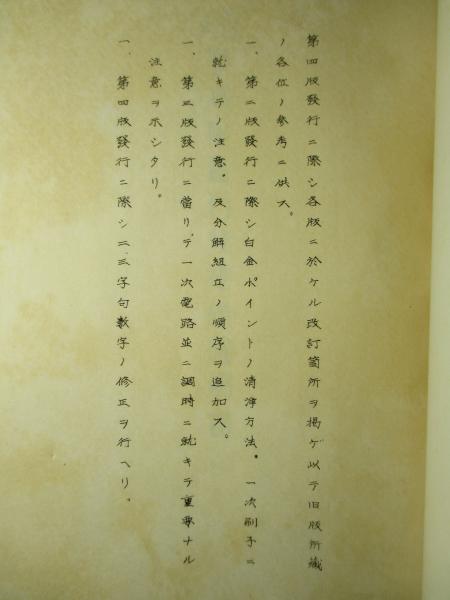 第四版發行ニ際シ各版ニ於ケル改訂箇所ヲ掲ゲ以テ旧版所藏
ノ各位ノ參考ニ供ス。
一、第二版發行ニ際シ白金ポイントノ清淨方法。一次刷子ニ
就キテノ注意。及分解組立ノ順序ヲ追加ス。
一、第三版發行ニ當リテ一次電路並ニ調時ニ就キテ重要ナル
注意ヲ示シタリ。
一、第四版發行ニ際シ二、三字句數字ノ修正ヲ行ヘリ。